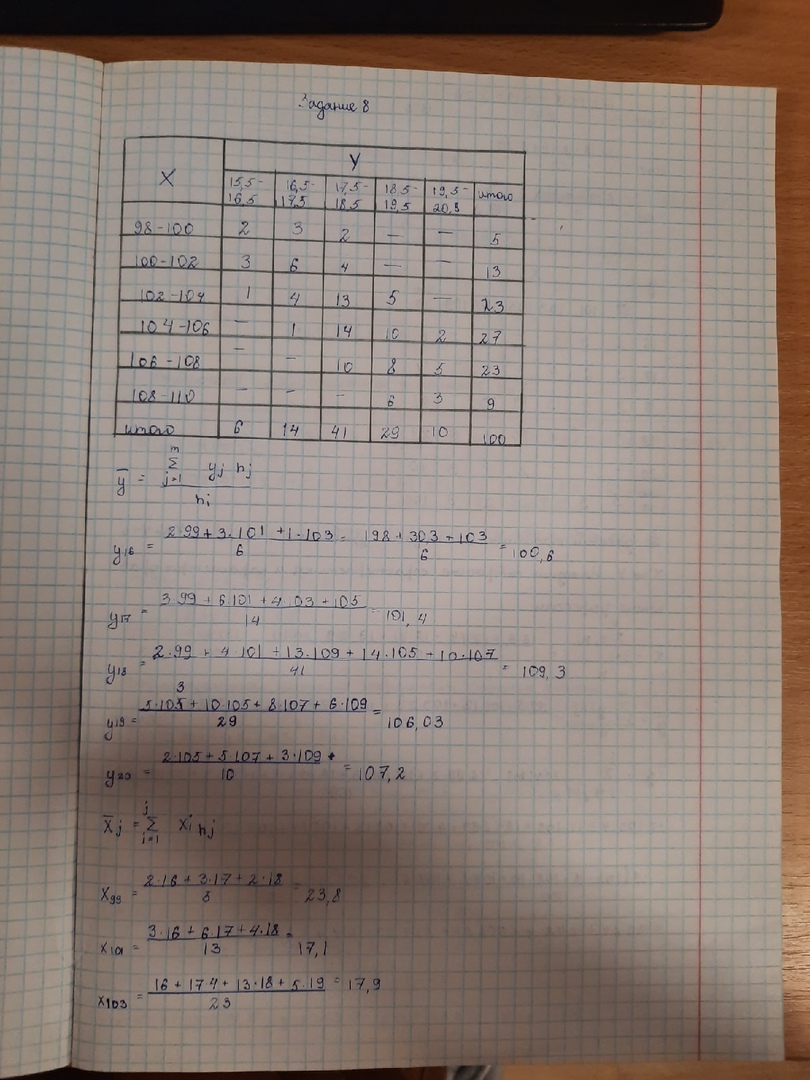 Задание 8
X Y
15,5-16,5 16,5-17,5 17,5-18,5 18,5-19,5 19,5-20,5 итого
98-100 2 3 2 — — 5
100-102 3 6 4 — — 13
102-104 1 4 13 5 — 23
104-106 — 1 14 10 2 27
106-108 — — 10 8 5 23
108-110 — — - 6 3 9
итого 6 14 41 29 10 100
ȳ = Σ_{j=1}^{m} yj nj / ni
y16 = (2·99+3·101+1·103)/6 = (198+303+103)/6 = 100,6
y17 = (3·99+6·101+4·03+105)/14 = 101,4
y18 = (2·99+4·101+13·109+14·105+10·107)/41 = 109,3
3
y19 = (5·105+10·105+8·107+6·109)/29 = 106,03
y20 = (2·105+5·107+3·109)/10 = 107,2
x̄j = Σ_{i=1}^{j} xi nj
x99 = (2·16+3·17+2·18)/8 = 23,8
x101 = (3·16+6·17+4·18)/13 = 17,1
x103 = (16+17·4+13·18+5·19)/23 = 17,9